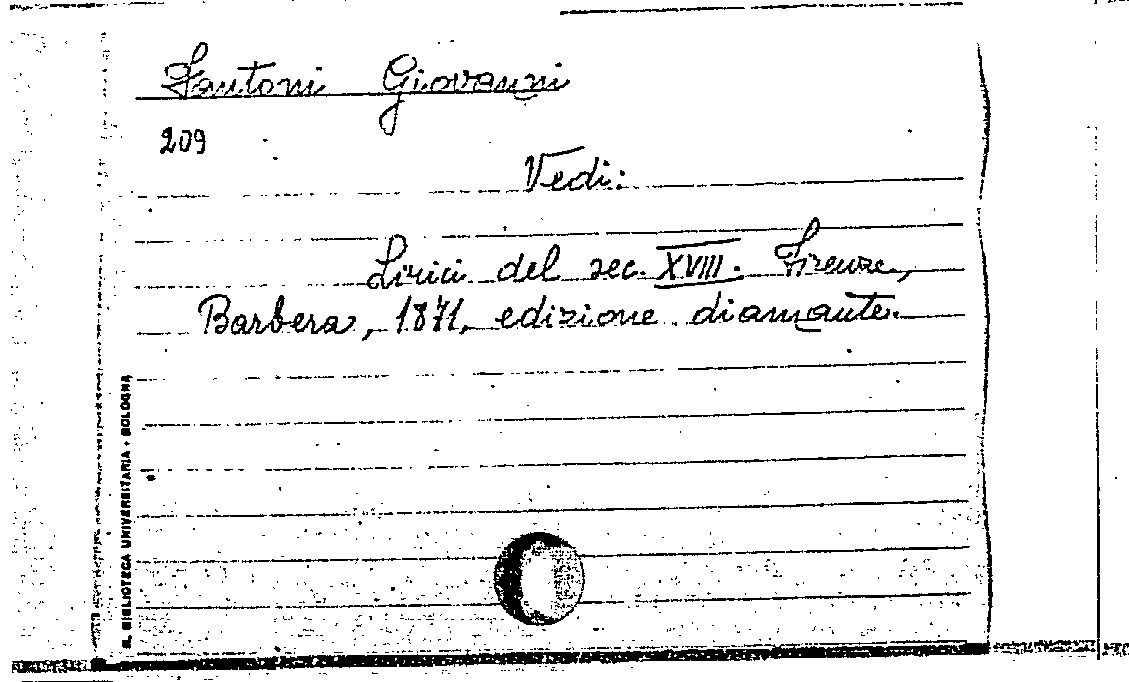 Fantoni Giovanni
209
Vedi:
Lirici del sec. XVIII. Firenze,
Barbera, 1871, edizione diamante.
R. BIBLIOTECA UNIVERSITARIA - BOLOGNA